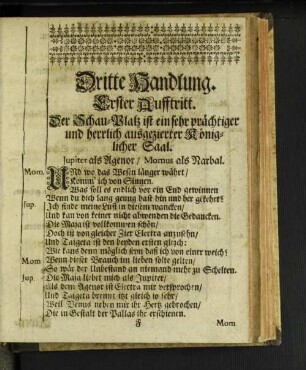 Dritte Handlung.
Erster Aufftritt.
Der Schau-Platz ist ein sehr prächtiger
und herrlich ausgezierter König-
licher Saal.
Jupiter als Agenor / Momus als Narbal.
Mom. UNd wo das Wesen länger währt /
Komm' ich von Sinnen.
Was soll es endlich vor ein End gewinnen
Wenn du dich lang genug hast hin und her gekehrt?
Jup. Ich finde meine Lust in diesem wancken /
Und kan von keiner nicht abwenden die Gedancken.
Die Maja ist vollkommen schön /
Doch ist von gleicher Zier Electra anzusehn /
Und Taigeta ist den beyden eben gleich:
Wie kans denn möglich seyn daß ich von einer weich?
Mom Wenn dieser Brauch im lieben solte gelten /
So wär der Unbestand an niemand mehr zu Schelten.
Jup. Die Maja liebet mich als Jupiter /
Als dem Agenor ist Electra mir versprochen /
Und Taigeta brennt itzt gleich so sehr /
Weil Venus neben mir ihr Hertz gebrochen /
Die in Gestalt der Pallas ihr erschienen.
Mom